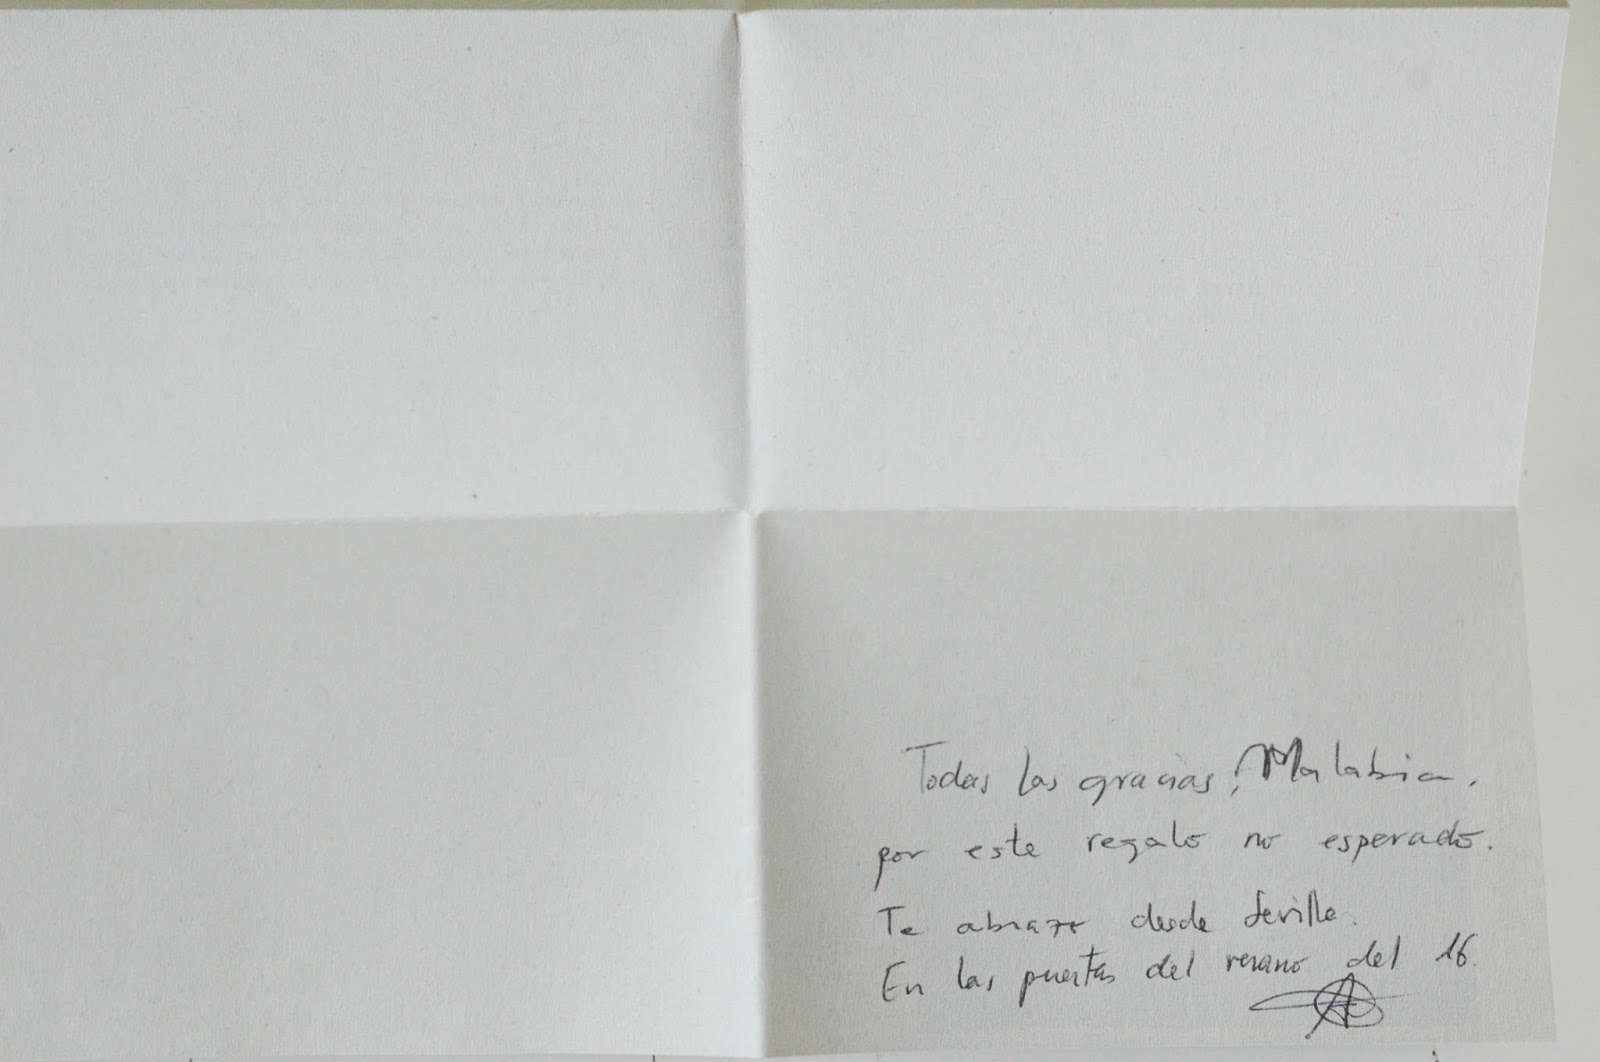 Todas las gracias, Malabia,
por este regalo no esperado.
Te abrazo desde Sevilla.
En las puertas del verano del 16.